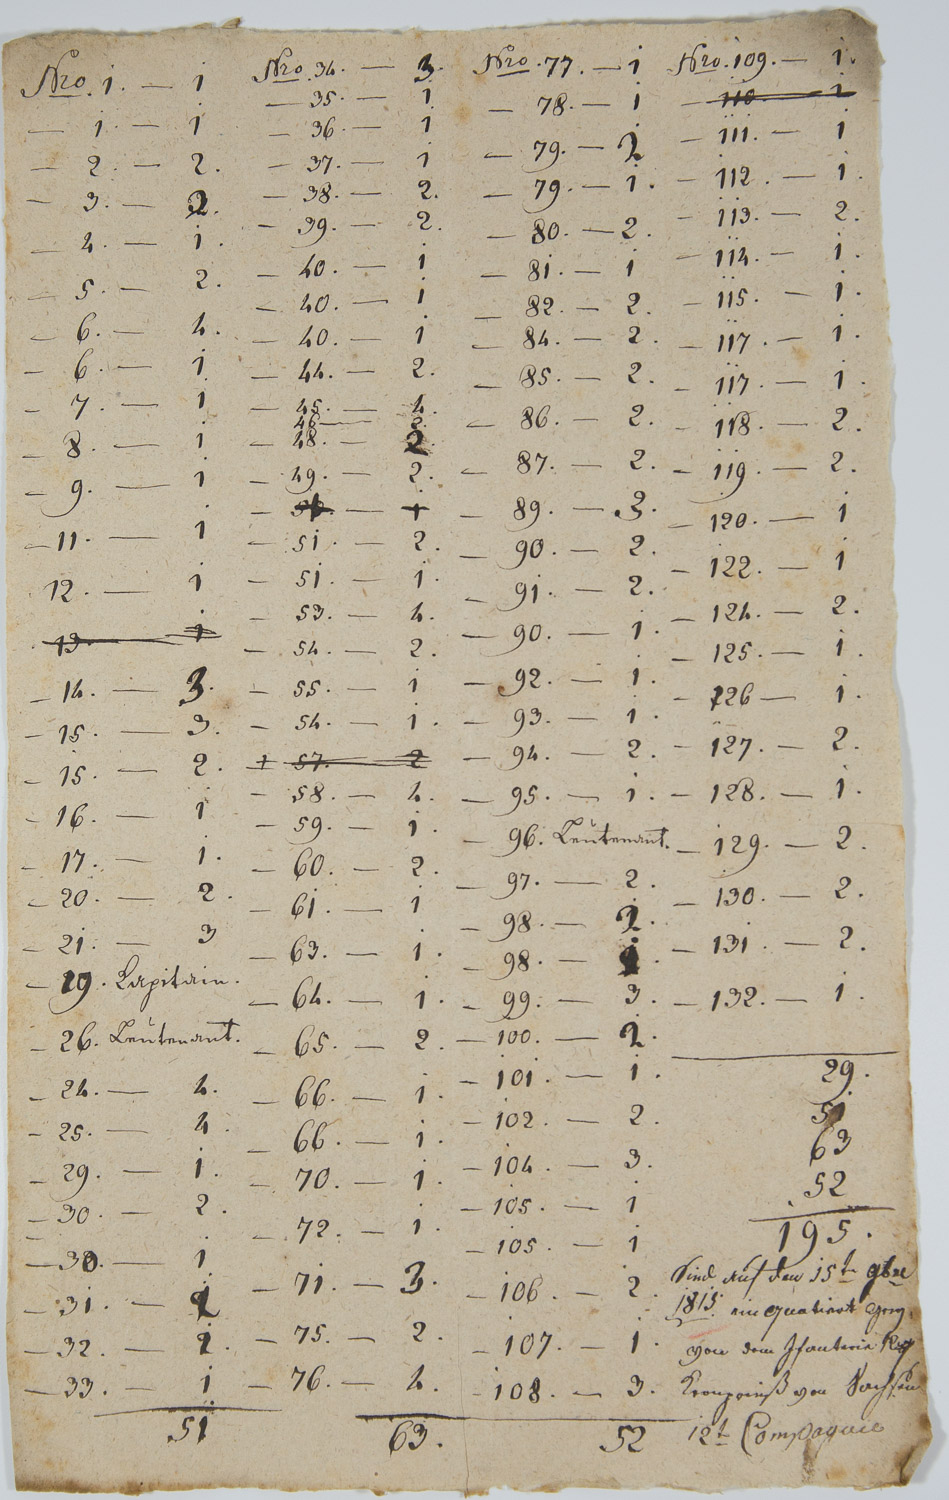 Nro. 1. — 1
— 1. — 1
— 2. — 2.
— 3. — 2.
— 4. — 1.
— 5. — 2.
— 6. — 4.
— 6. — 1
— 7. — 1
— 8. — 1
— 9. — 1
— 11. — 1
12. — 1
13. — 1
— 14. — 3.
— 15. — 3.
— 15. — 2.
— 16. — 1
— 17. — 1.
— 20. — 2.
— 21. — 3
— 19. Capitain.
— 26. Leutenant.
— 24. — 4.
— 25. — 4.
— 29. — 1.
— 30. — 2.
— 30. — 1
— 31. —
— 32. — 2.
— 33. — 1
51
Nro. 34. — 3.
— 35. — 1
— 36. — 1
— 37. — 1
— 38. — 2.
— 39. — 2.
— 40. — 1
— 40. — 1
— 40. — 1
— 44. — 2.
— 45. — 4.
46 — 2.
— 48. — 2
— 49. — 2.
— 51. — 2.
— 51. — 1.
— 53. — 4.
— 54. — 2.
— 55. — 1
— 54. — 1.
+ 57. — 2
— 58. — 4.
— 59. — 1.
— 60. — 2.
— 61. — 1
— 63. — 1.
— 64. — 1.
— 65. — 2.
— 66. — 1.
— 66. — 1.
— 70. — 1.
— 72. — 1.
— 71. — 3.
— 75. — 2.
— 76. — 4.
63.
Nro. 77. — 1
— 78. — 1
— 79. — 2
— 79. — 1.
— 80. — 2.
— 81. — 1
— 82. — 2.
— 84. — 2.
— 85. — 2.
— 86. — 2.
— 87. — 2.
— 89. — 3.
— 90. — 2.
— 91. — 2.
— 90. — 1.
— 92. — 1.
— 93. — 1.
— 94. — 2.
— 95. — 1.
— 96. Leutenant.
— 97. — 2.
— 98. — 2.
— 98. —
— 99. — 3.
— 100. — 2.
— 101. — 1.
— 102. — 2.
— 104. — 3.
— 105. — 1
— 105. — 1
— 106. — 2.
— 107. — 1.
— 108. — 3.
52
Nro. 109. — 1.
— 110. — 1
— 111. — 1
— 112. — 1.
— 113. — 2.
— 114. — 1.
— 115. — 1.
— 117. — 1.
— 117. — 1.
— 118. — 2.
— 119. — 2.
— 120. — 1
— 122. — 1
— 124. — 2.
— 125. — 1.
— 126 — 1.
— 127. — 2.
— 128. — 1.
— 129. — 2.
— 130. — 2.
— 131. — 2.
— 132. — 1.
29.
51
63
52
195.
Sind auf den 15t 9bre
1813 einquatiert
von dem Ifanterie Reg
Kronprinß von Sachsen
12t Compagnie